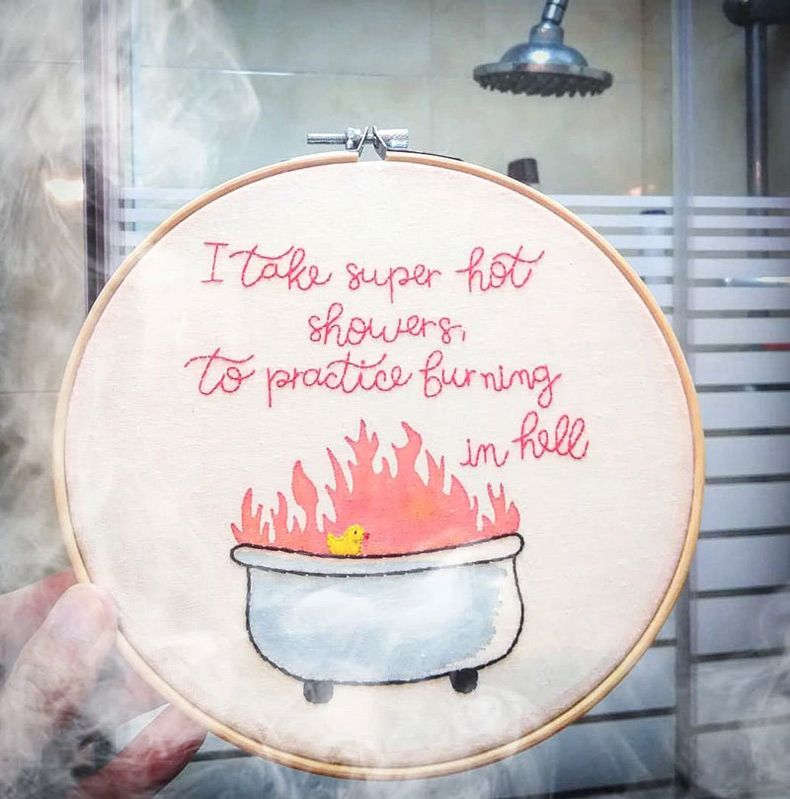 I take super hot
showers,
to practice burning
in hell